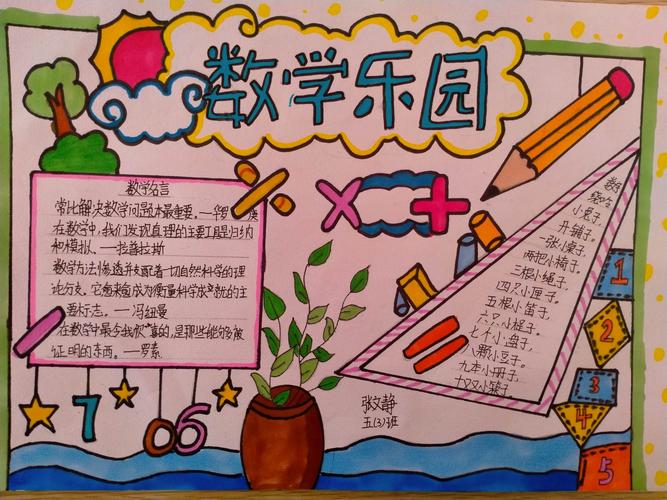 数学乐园
数学名言
常比解决数学问题本最重要。—华罗庚
在数学中,我们发现真理的主要工具是归纳
和模拟。—拉普拉斯
数学方法惨透并支配着一切自然科学的理
论分支。它愈来愈成为衡量科学成就的主
要标志。—冯纽曼
在数学中最令我欣喜的,是那些能够被
证明的东西。—罗素
数字
小兔子,
开铺子。
一张小桌子,
两把小椅子。
三根小绳子,
四只小匣子。
五根小笛子,
六只小棍子。
七个小盘子,
八颗小豆子。
九本小册子,
十双小筷子。
张文静
五(3)班
7 0 6
1
2
3
4
5